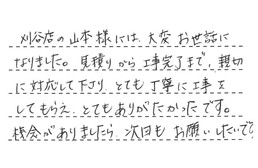 刈谷店の山本様には、大変お世話に
なりました。見積りから工事完了まで、親切
に対応して下さり、とても丁寧に工事を
してもらえ、とてもありがたかったです。
機会がありましたら、次回もお願いしたいで